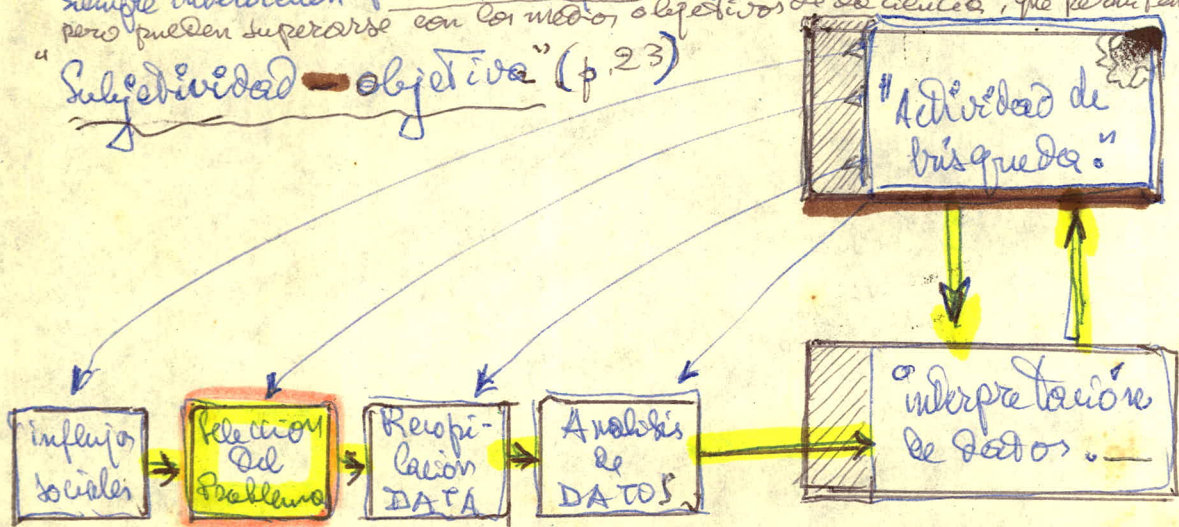 siempre
pero pueden superarse con los medios objetivos de la ciencia, que permiten
"Subjetividad - objetiva" (p.23)
"Actividad de
búsqueda."
"interpretación
de datos.
influjos
sociales
Selección
del
Problema
Recopi-
lación
DATA
Analisis
de
DATOS